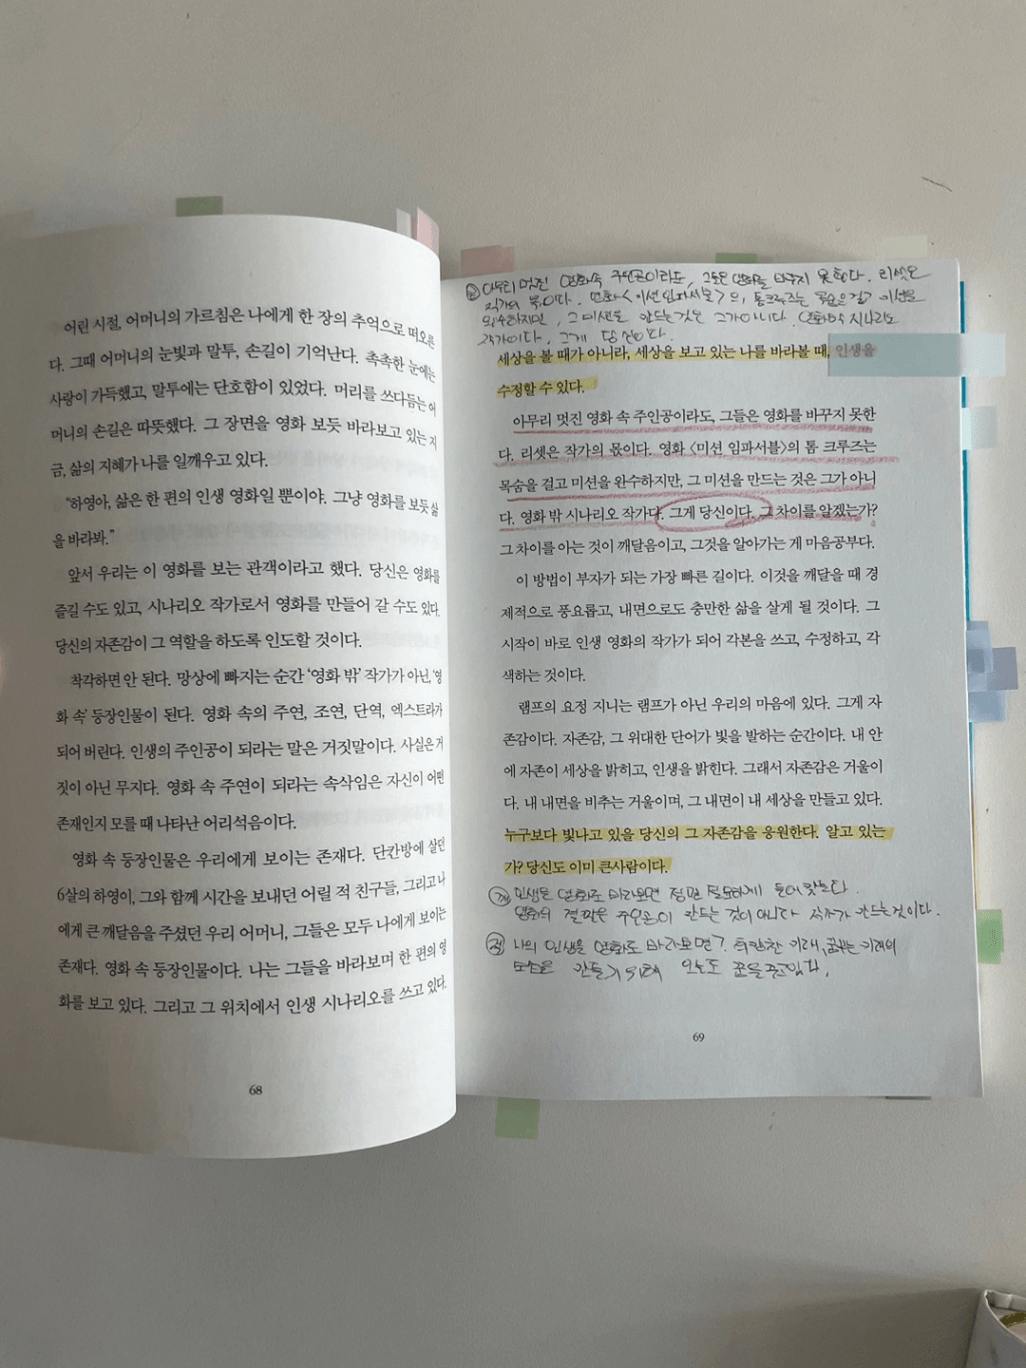 어린 시절, 어머니의 가르침은 나에게 한 장의 추억으로 떠오른
다. 그때 어머니의 눈빛과 말투, 손길이 기억난다. 촉촉한 눈에는
사랑이 가득했고, 말투에는 단호함이 있었다. 머리를 쓰다듬는 어
머니의 손길은 따뜻했다. 그 장면을 영화 보듯 바라보고 있는 지
금, 삶의 지혜가 나를 일깨우고 있다.
“하영아, 삶은 한 편의 인생 영화일 뿐이야. 그냥 영화를 보듯 삶
을 바라봐.”
앞서 우리는 이 영화를 보는 관객이라고 했다. 당신은 영화를
즐길 수도 있고, 시나리오 작가로서 영화를 만들어 갈 수도 있다.
당신의 자존감이 그 역할을 하도록 인도할 것이다.
착각하면 안 된다. 망상에 빠지는 순간 ‘영화 밖’ 작가가 아닌, ‘영
화 속’ 등장인물이 된다. 영화 속의 주연, 조연, 단역, 엑스트라가
되어 버린다. 인생의 주인공이 되라는 말은 거짓말이다. 사실은 거
짓이 아닌 무지다. 영화 속 주연이 되라는 속삭임은 자신이 어떤
존재인지 모를 때 나타난 어리석음이다.
영화 속 등장인물은 우리에게 보이는 존재다. 단칸방에 살던
6살의 하영이, 그와 함께 시간을 보내던 어릴 적 친구들, 그리고 나
에게 큰 깨달음을 주셨던 우리 어머니, 그들은 모두 나에게 보이는
존재다. 영화 속 등장인물이다. 나는 그들을 바라보며 한 편의 영
화를 보고 있다. 그리고 그 위치에서 인생 시나리오를 쓰고 있다.
68
아무리 멋진 영화속 주인공이라도, 그들은 영화를 바꾸지 못한다. 리셋은
작가의 몫이다. 영화 <미션 임파서블>의, 톰크루즈는 목숨은걸고 미션을
완수하지만, 그 미션을 만드는것은 그가아니다. 영화밖 시나리오
작가이다, 그게 당신이다.
세상을 볼 때가 아니라, 세상을 보고 있는 나를 바라볼 때, 인생을
수정할 수 있다.
아무리 멋진 영화 속 주인공이라도, 그들은 영화를 바꾸지 못한
다. 리셋은 작가의 몫이다. 영화 〈미션 임파서블〉의 톰 크루즈는
목숨을 걸고 미션을 완수하지만, 그 미션을 만드는 것은 그가 아니
다. 영화 밖 시나리오 작가다. 그게 당신이다. 그 차이를 알겠는가?
그 차이를 아는 것이 깨달음이고, 그것을 알아가는 게 마음공부다.
이 방법이 부자가 되는 가장 빠른 길이다. 이것을 깨달을 때 경
제적으로 풍요롭고, 내면으로도 충만한 삶을 살게 될 것이다. 그
시작이 바로 인생 영화의 작가가 되어 각본을 쓰고, 수정하고, 각
색하는 것이다.
램프의 요정 지니는 램프가 아닌 우리의 마음에 있다. 그게 자
존감이다. 자존감, 그 위대한 단어가 빛을 발하는 순간이다. 내 안
에 자존이 세상을 밝히고, 인생을 밝힌다. 그래서 자존감은 거울이
다. 내 내면을 비추는 거울이며, 그 내면이 내 세상을 만들고 있다.
누구보다 빛나고 있을 당신의 그 자존감을 응원한다. 알고 있는
가? 당신도 이미 큰사람이다.
깨 인생을 영화로 바라보면 장면 필요하게
영화의 결말은 주인공이 만드는 것이 아니다 작가가 만드는것이다.
적 나의 인생을 영화로 바라보면? 미래의
만들기 위해 오늘도 꿈을 꾸고있다.
69